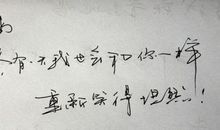 有一天我也会和你一样
重新笑得坦然！